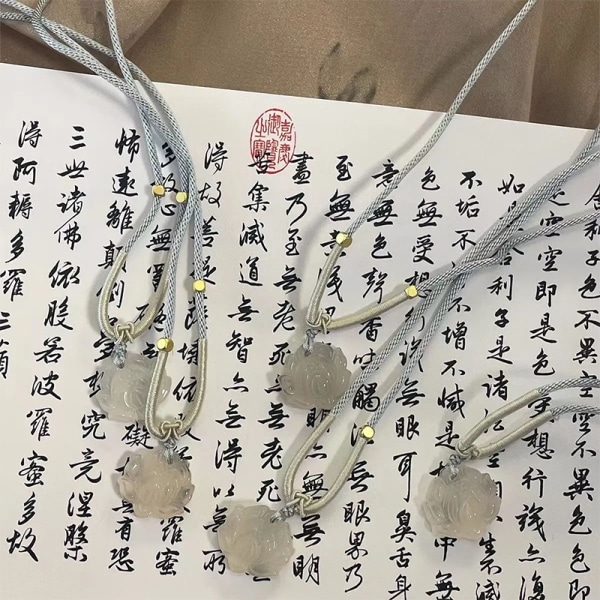 舍利子色不異空空不異色色即
空空即是色想行識亦復
如利子是諸生不滅
不垢不不增不減是中無
色無受想行識無眼耳鼻舌身
意無色聲香味觸無眼界乃
至無意識明無無明
盡乃至無老死無老死
苦集滅道無智亦無得以無所
得故菩提薩埵依羅蜜
多故心無罣礙無有恐
怖遠離顛倒究竟涅槃
三世諸佛依般若波羅蜜多故
得阿耨多羅三藐
嘉慶御覽之寶